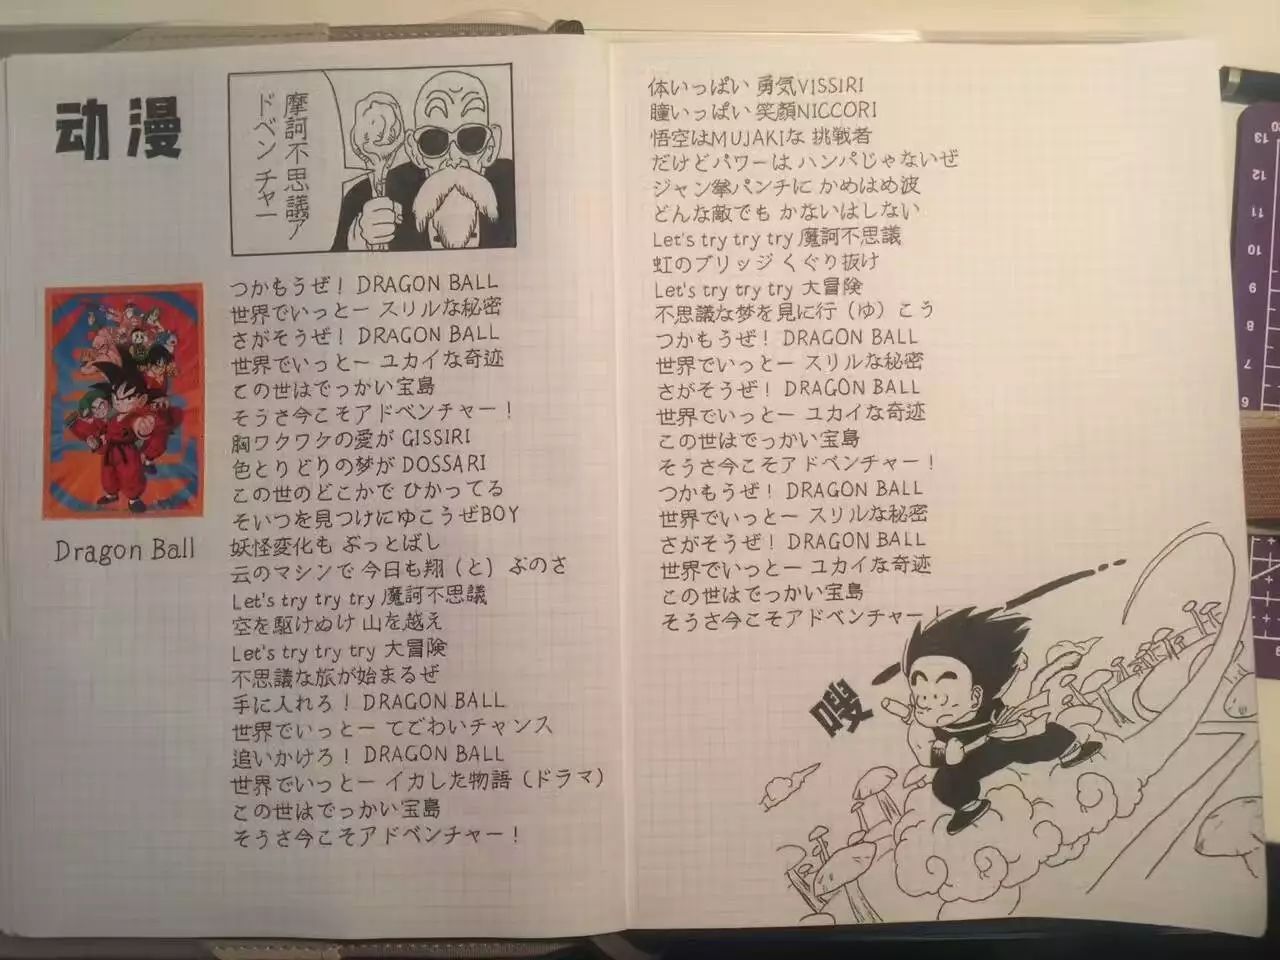 动漫
摩訶不思議ア
ドベンチャー
Dragon Ball
つかもうぜ！DRAGON BALL
世界でいっとー スリルな秘密
さがそうぜ！DRAGON BALL
世界でいっとー ユカイな奇迹
この世はでっかい宝島
そうさ今こそアドベンチャー！
胸ワクワクの愛が GISSIRI
色とりどりの梦が DOSSARI
この世のどこかで ひかってる
そいつを見つけにゆこうぜBOY
妖怪変化も ぶっとばし
云のマシンで 今日も翔（と）ぶのさ
Let's try try try 魔訶不思議
空を駆けぬけ 山を越え
Let's try try try 大冒険
不思議な旅が始まるぜ
手に入れろ！DRAGON BALL
世界でいっとー てごわいチャンス
追いかけろ！DRAGON BALL
世界でいっとー イカした物語（ドラマ）
この世はでっかい宝島
そうさ今こそアドベンチャー！
体いっぱい 勇気VISSIRI
瞳いっぱい 笑顔NICCORI
悟空はMUJAKIな 挑戦者
だけどパワーは ハンパじゃないぜ
ジャン拳パンチに かめはめ波
どんな敵でも かないはしない
Let's try try try 魔訶不思議
虹のブリッジ くぐり抜け
Let's try try try 大冒険
不思議な梦を見に行（ゆ）こう
つかもうぜ！DRAGON BALL
世界でいっとー スリルな秘密
さがそうぜ！DRAGON BALL
世界でいっとー ユカイな奇迹
この世はでっかい宝島
そうさ今こそアドベンチャー！
つかもうぜ！DRAGON BALL
世界でいっとー スリルな秘密
さがそうぜ！DRAGON BALL
世界でいっとー ユカイな奇迹
この世はでっかい宝島
そうさ今こそアドベンチャー！
嗖
13
12
11
10
9
8
7
6